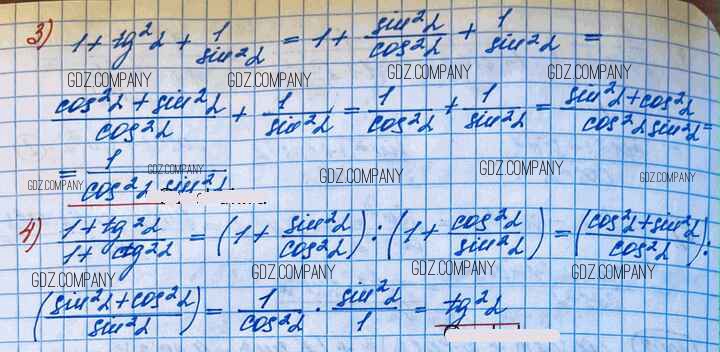 3) 1 + tg²α + 1/sin²α = 1 + sin²α/cos²α + 1/sin²α =
GDZ.COMPANY GDZ.COMPANY GDZ.COMPANY GDZ.COMPANY
(cos²α + sin²α)/cos²α + 1/sin²α = 1/cos²α + 1/sin²α = (sin²α + cos²α)/(cos²α sin²α) =
= 1/(cos²α sin²α)
GDZ.COMPANY GDZ.COMPANY GDZ.COMPANY GDZ.COMPANY GDZ.COMPANY
4) (1 + tg²α)/(1 + ctg²α) = (1 + sin²α/cos²α) : (1 + cos²α/sin²α) = ((cos²α + sin²α)/cos²α) :
GDZ.COMPANY GDZ.COMPANY GDZ.COMPANY GDZ.COMPANY
((sin²α + cos²α)/sin²α) = 1/cos²α · sin²α/1 = tg²α